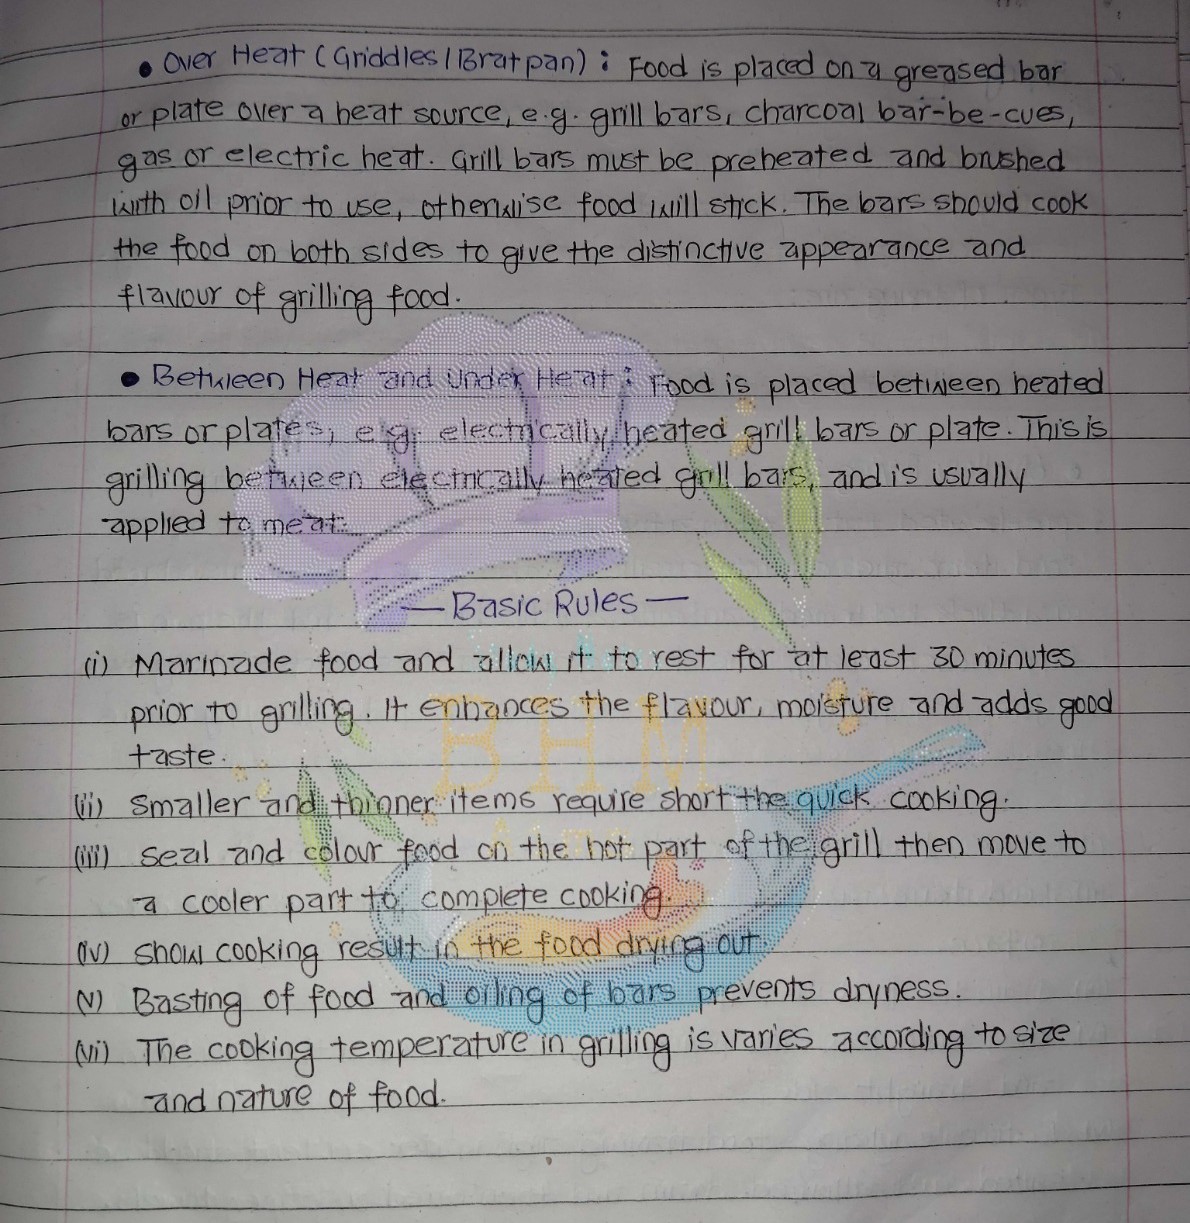 • Over Heat (Griddles/Bratpan) : Food is placed on a greased bar
or plate over a heat source, e.g. grill bars, charcoal bar-be-cues,
gas or electric heat. Grill bars must be preheated and brushed
with oil prior to use, otherwise food will stick. The bars should cook
the food on both sides to give the distinctive appearance and
flavour of grilling food.
• Between Heat and Under Heat : Food is placed between heated
bars or plates, e.g. electrically heated grill bars or plate. This is
grilling between electrically heated grill bars, and is usually
applied to meat.
— Basic Rules —
(i) Marinade food and allow it to rest for at least 30 minutes
prior to grilling. It enhances the flavour, moisture and adds good
taste.
BHM
(ii) Smaller and thinner items require short the quick cooking.
(iii) Seal and colour food on the hot part of the grill then move to
a cooler part to complete cooking.
(iv) Show cooking result in the food drying out.
(v) Basting of food and oiling of bars prevents dryness.
(vi) The cooking temperature in grilling is varies according to size
and nature of food.